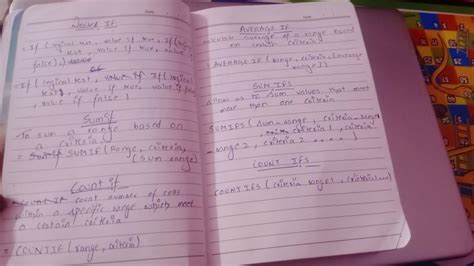 Nested If
If (logical test, value if true, If (logical
test, value if true, value
if false)
If (logical test, If (logical
test, value if true, value if false)
, value if false)
Sumif
To sum a range based on
a criteria.
SUMIF (Range, criteria,
(Sum range)
Count if
count number of cells
within a specific range which meet
a certain criteria
= COUNTIF (range, criteria)
AVERAGE IF
average of a range based
on certain criteria
AVERAGE IF (range, criteria, [average
range])
SUM IFS
allows us to sum values that meet
more than one criteria
SUMIFS (sum-range, criteria-range
criteria 1, criteria
-range 2, criteria 2
COUNT IFS
COUNTIFS (criteria range1, criteria1